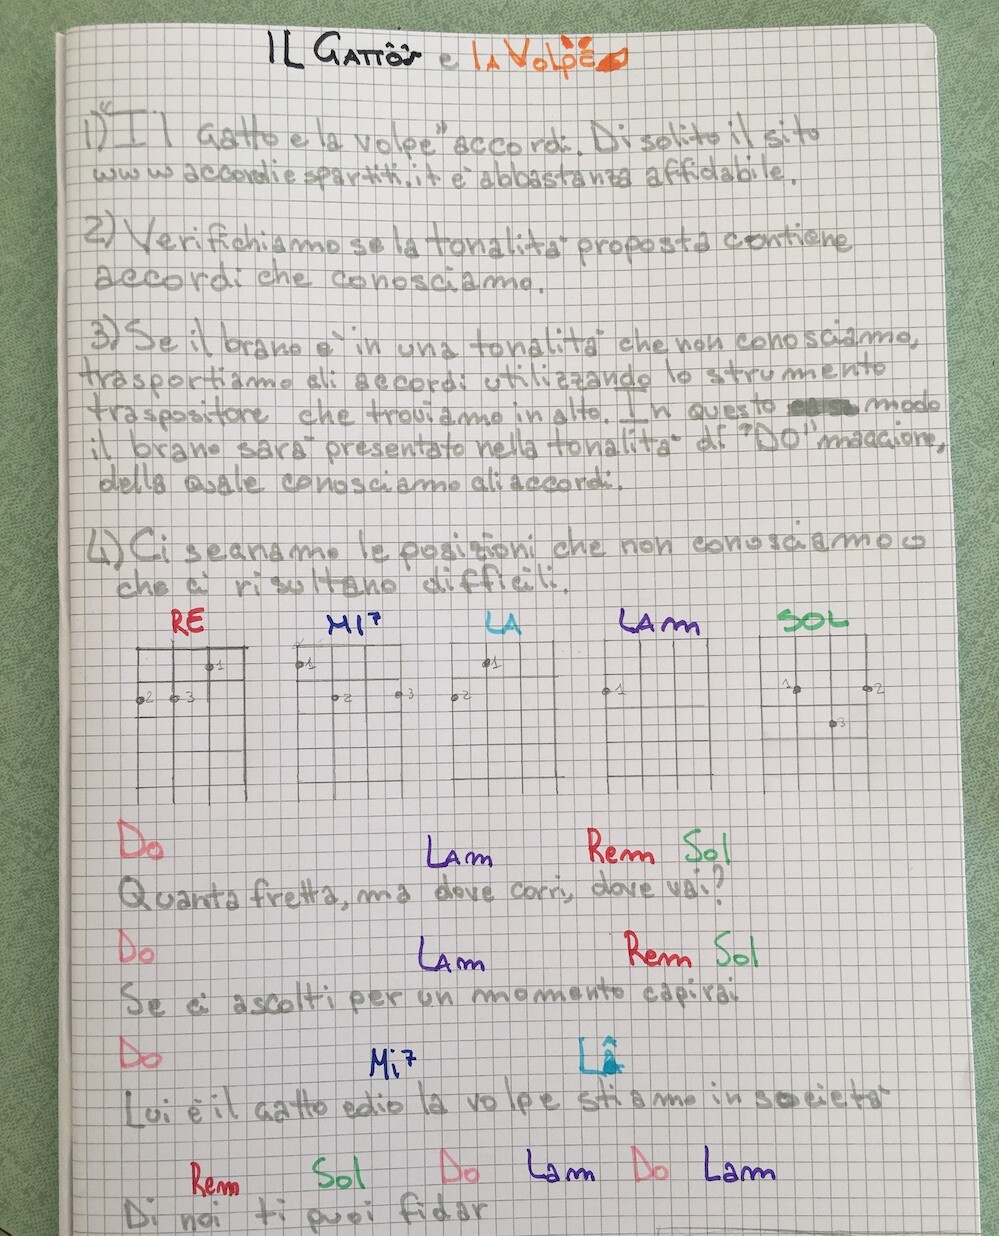 IL GATTO e LA VOLPE
1) "Il Gatto e la volpe" accordi. Di solito il sito
www accordiespartiti.it è abbastanza affidabile.
2) Verifichiamo se la tonalità proposta contiene
accordi che conosciamo.
3) Se il brano è in una tonalità che non conosciamo,
trasportiamo gli accordi utilizzando lo strumento
traspositore che troviamo in alto. In questo modo
il brano sarà presentato nella tonalità di "DO" maggiore,
della quale conosciamo gli accordi.
4) Ci segnamo le posizioni che non conosciamo o
che ci risultano difficili.
RE MI7 LA LAm SOL
1 1 1
2 3 2 3 2 1 1 2
3
Do Lam Rem Sol
Quanta fretta, ma dove corri, dove vai?
Do Lam Rem Sol
Se ci ascolti per un momento capirai
Do Mi7 La
Lui è il gatto ed io la volpe stiamo in società
Rem Sol Do Lam Do Lam
Di noi ti puoi fidar